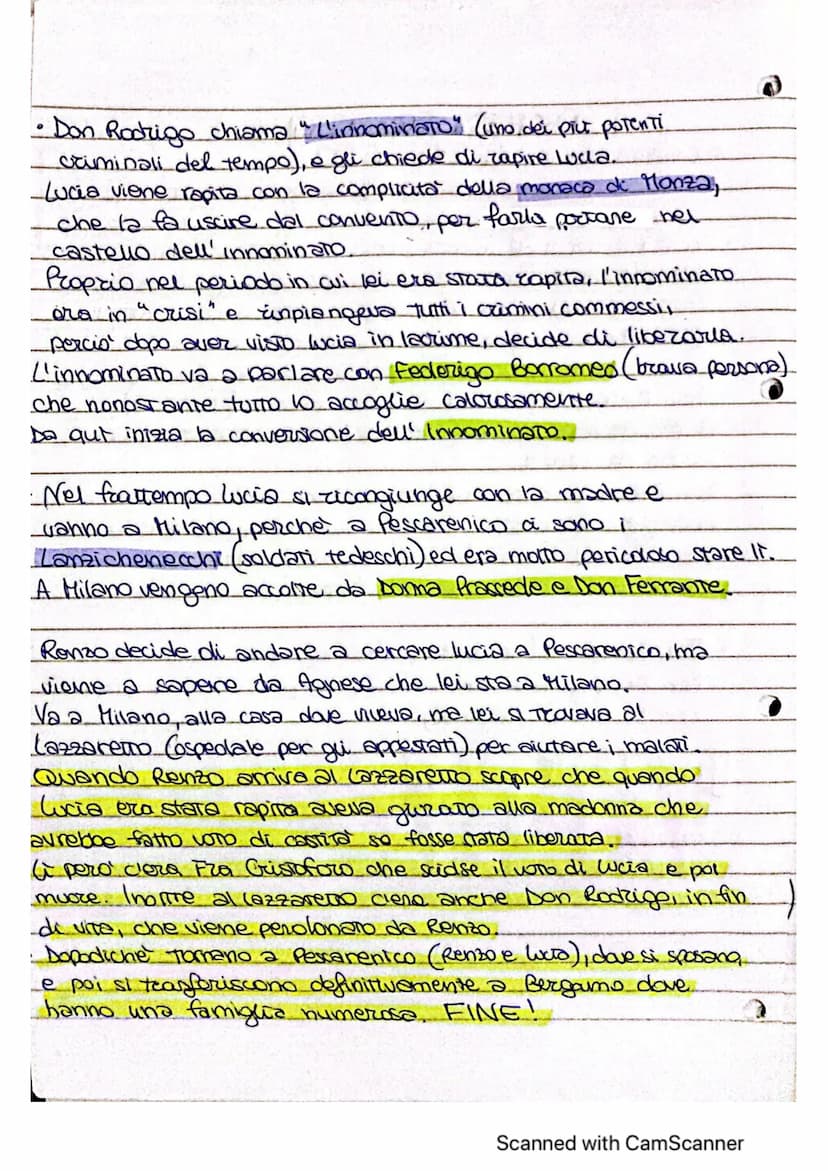 • Don Rodrigo chiama "L'innominato" (uno dei più potenti
criminali del tempo), e gli chiede di rapire Lucia.
Lucia viene rapita con la complicità della monaca di Monza,
che la fa uscire dal convento, per farla portare nel
castello dell'innominato.
Proprio nel periodo in cui lei era stata rapita, l'innominato
era in "crisi" e rimpiangeva tutti i crimini commessi,
perciò dopo aver visto Lucia in lacrime, decide di liberarla.
L'innominato va a parlare con Federigo Borromeo (brava persona)
che nonostante tutto lo accoglie calorosamente.
Da qui inizia la conversione dell'Innominato.
· Nel frattempo Lucia si ricongiunge con la madre e
vanno a Milano, perchè a Pescarenico ci sono i
Lanzichenecchi (soldati tedeschi) ed era molto pericoloso stare lì.
A Milano vengono accolte da Donna Prassede e Don Ferrante.
Renzo decide di andare a cercare Lucia a Pescarenico, ma
viene a sapere da Agnese che lei sta a Milano.
Va a Milano, alla casa dove viveva, ma lei si trovava al
Lazzaretto (ospedale per gli appestati) per aiutare i malati.
Quando Renzo arriva al Lazzaretto scopre che quando
Lucia era stata rapita aveva giurato alla madonna che
avrebbe fatto voto di castità se fosse stata liberata.
Lì però c'era Fra Cristoforo che scidse il voto di Lucia e poi
muore. Inoltre al Lazzaretto c'era anche Don Rodrigo, in fin
di vita, che viene perdonato da Renzo.
· Dopodichè tornano a Pescarenico (Renzo e Lucia), dove si sposano,
e poi si trasferiscono definitivamente a Bergamo dove
hanno una famiglia numerosa. FINE!
Scanned with CamScanner